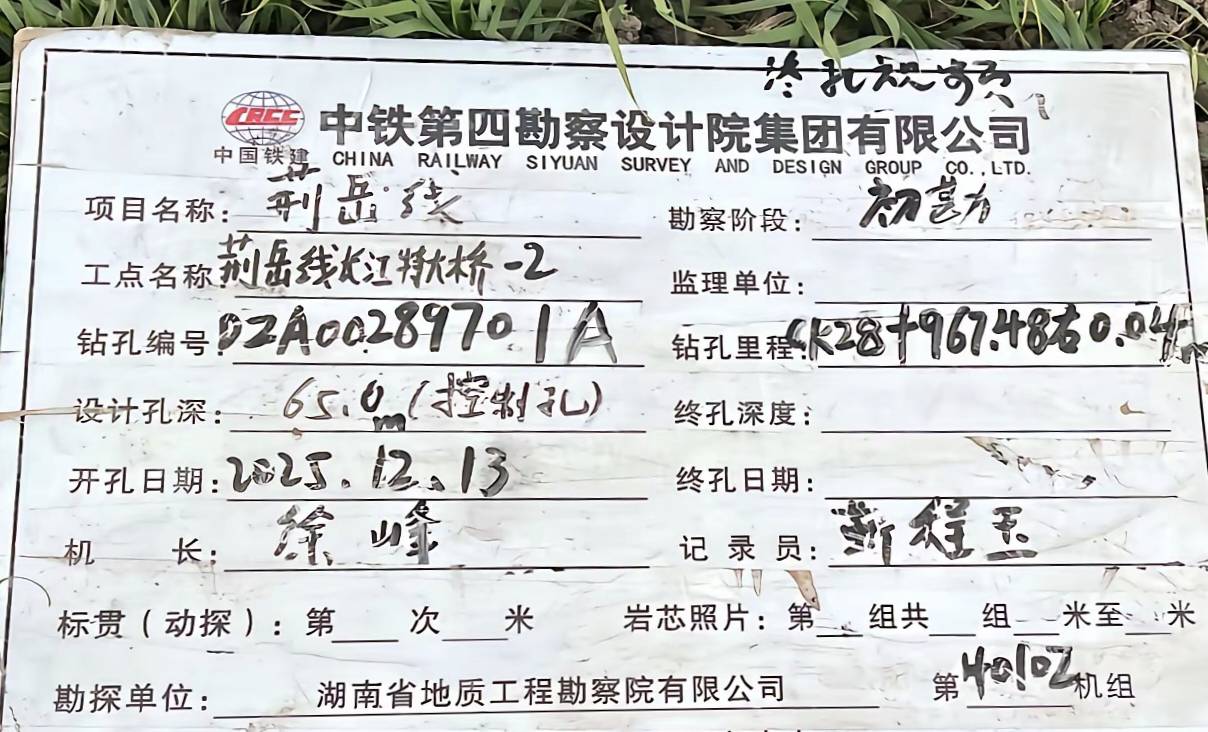 终孔视频
CRCC
中国铁建
中铁第四勘察设计院集团有限公司
CHINA RAILWAY SIYUAN SURVEY AND DESIGN GROUP CO.,LTD.
项目名称: 荆岳线 勘察阶段: 初勘
工点名称 荆岳线长江特大桥-2 监理单位:
钻孔编号: DZA00289701A 钻孔里程: CK28+967.48右0.04m
设计孔深: 65.0m(控制孔) 终孔深度:
开孔日期: 2025.12.13 终孔日期:
机 长: 徐峰 记录员: 靳程玉
标贯(动探): 第 次 米 岩芯照片: 第 组共 组 米至 米
勘探单位: 湖南省地质工程勘察院有限公司 第40102机组